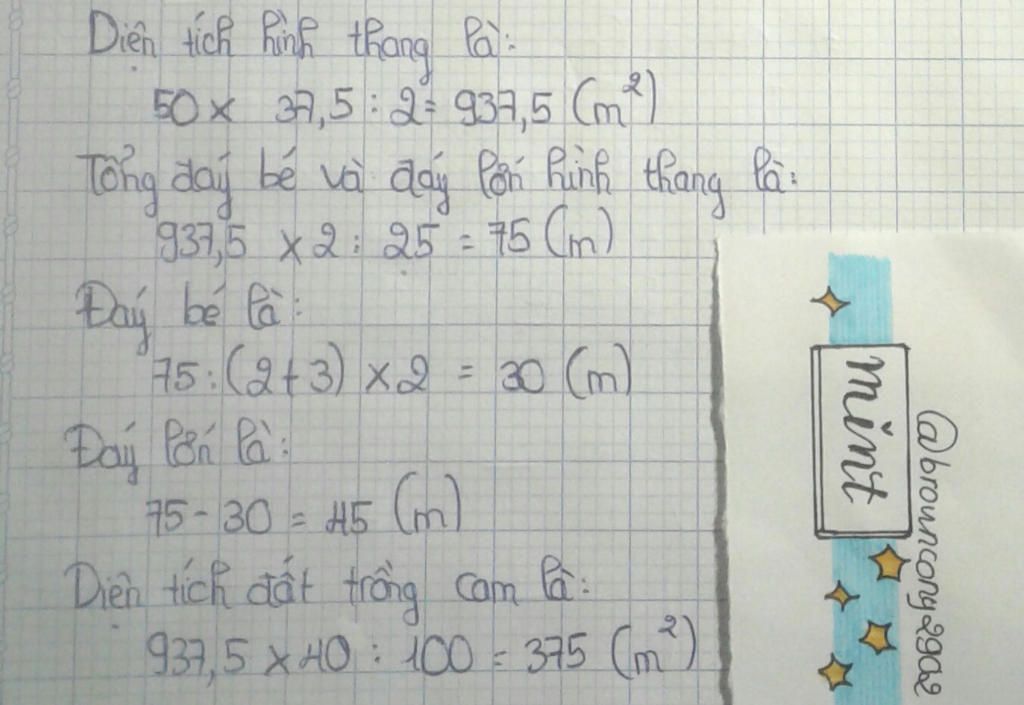 Diện tích hình thang là:
50 x 37,5 : 2 = 937,5 (m²)
Tổng đáy bé và đáy lớn hình thang là:
937,5 x 2 : 25 = 75 (m)
Đáy bé là:
75 : (2 + 3) x 2 = 30 (m)
Đáy lớn là:
75 - 30 = 45 (m)
Diện tích đất trồng cam là:
937,5 x 40 : 100 = 375 (m²)
mint
@browncony29a2